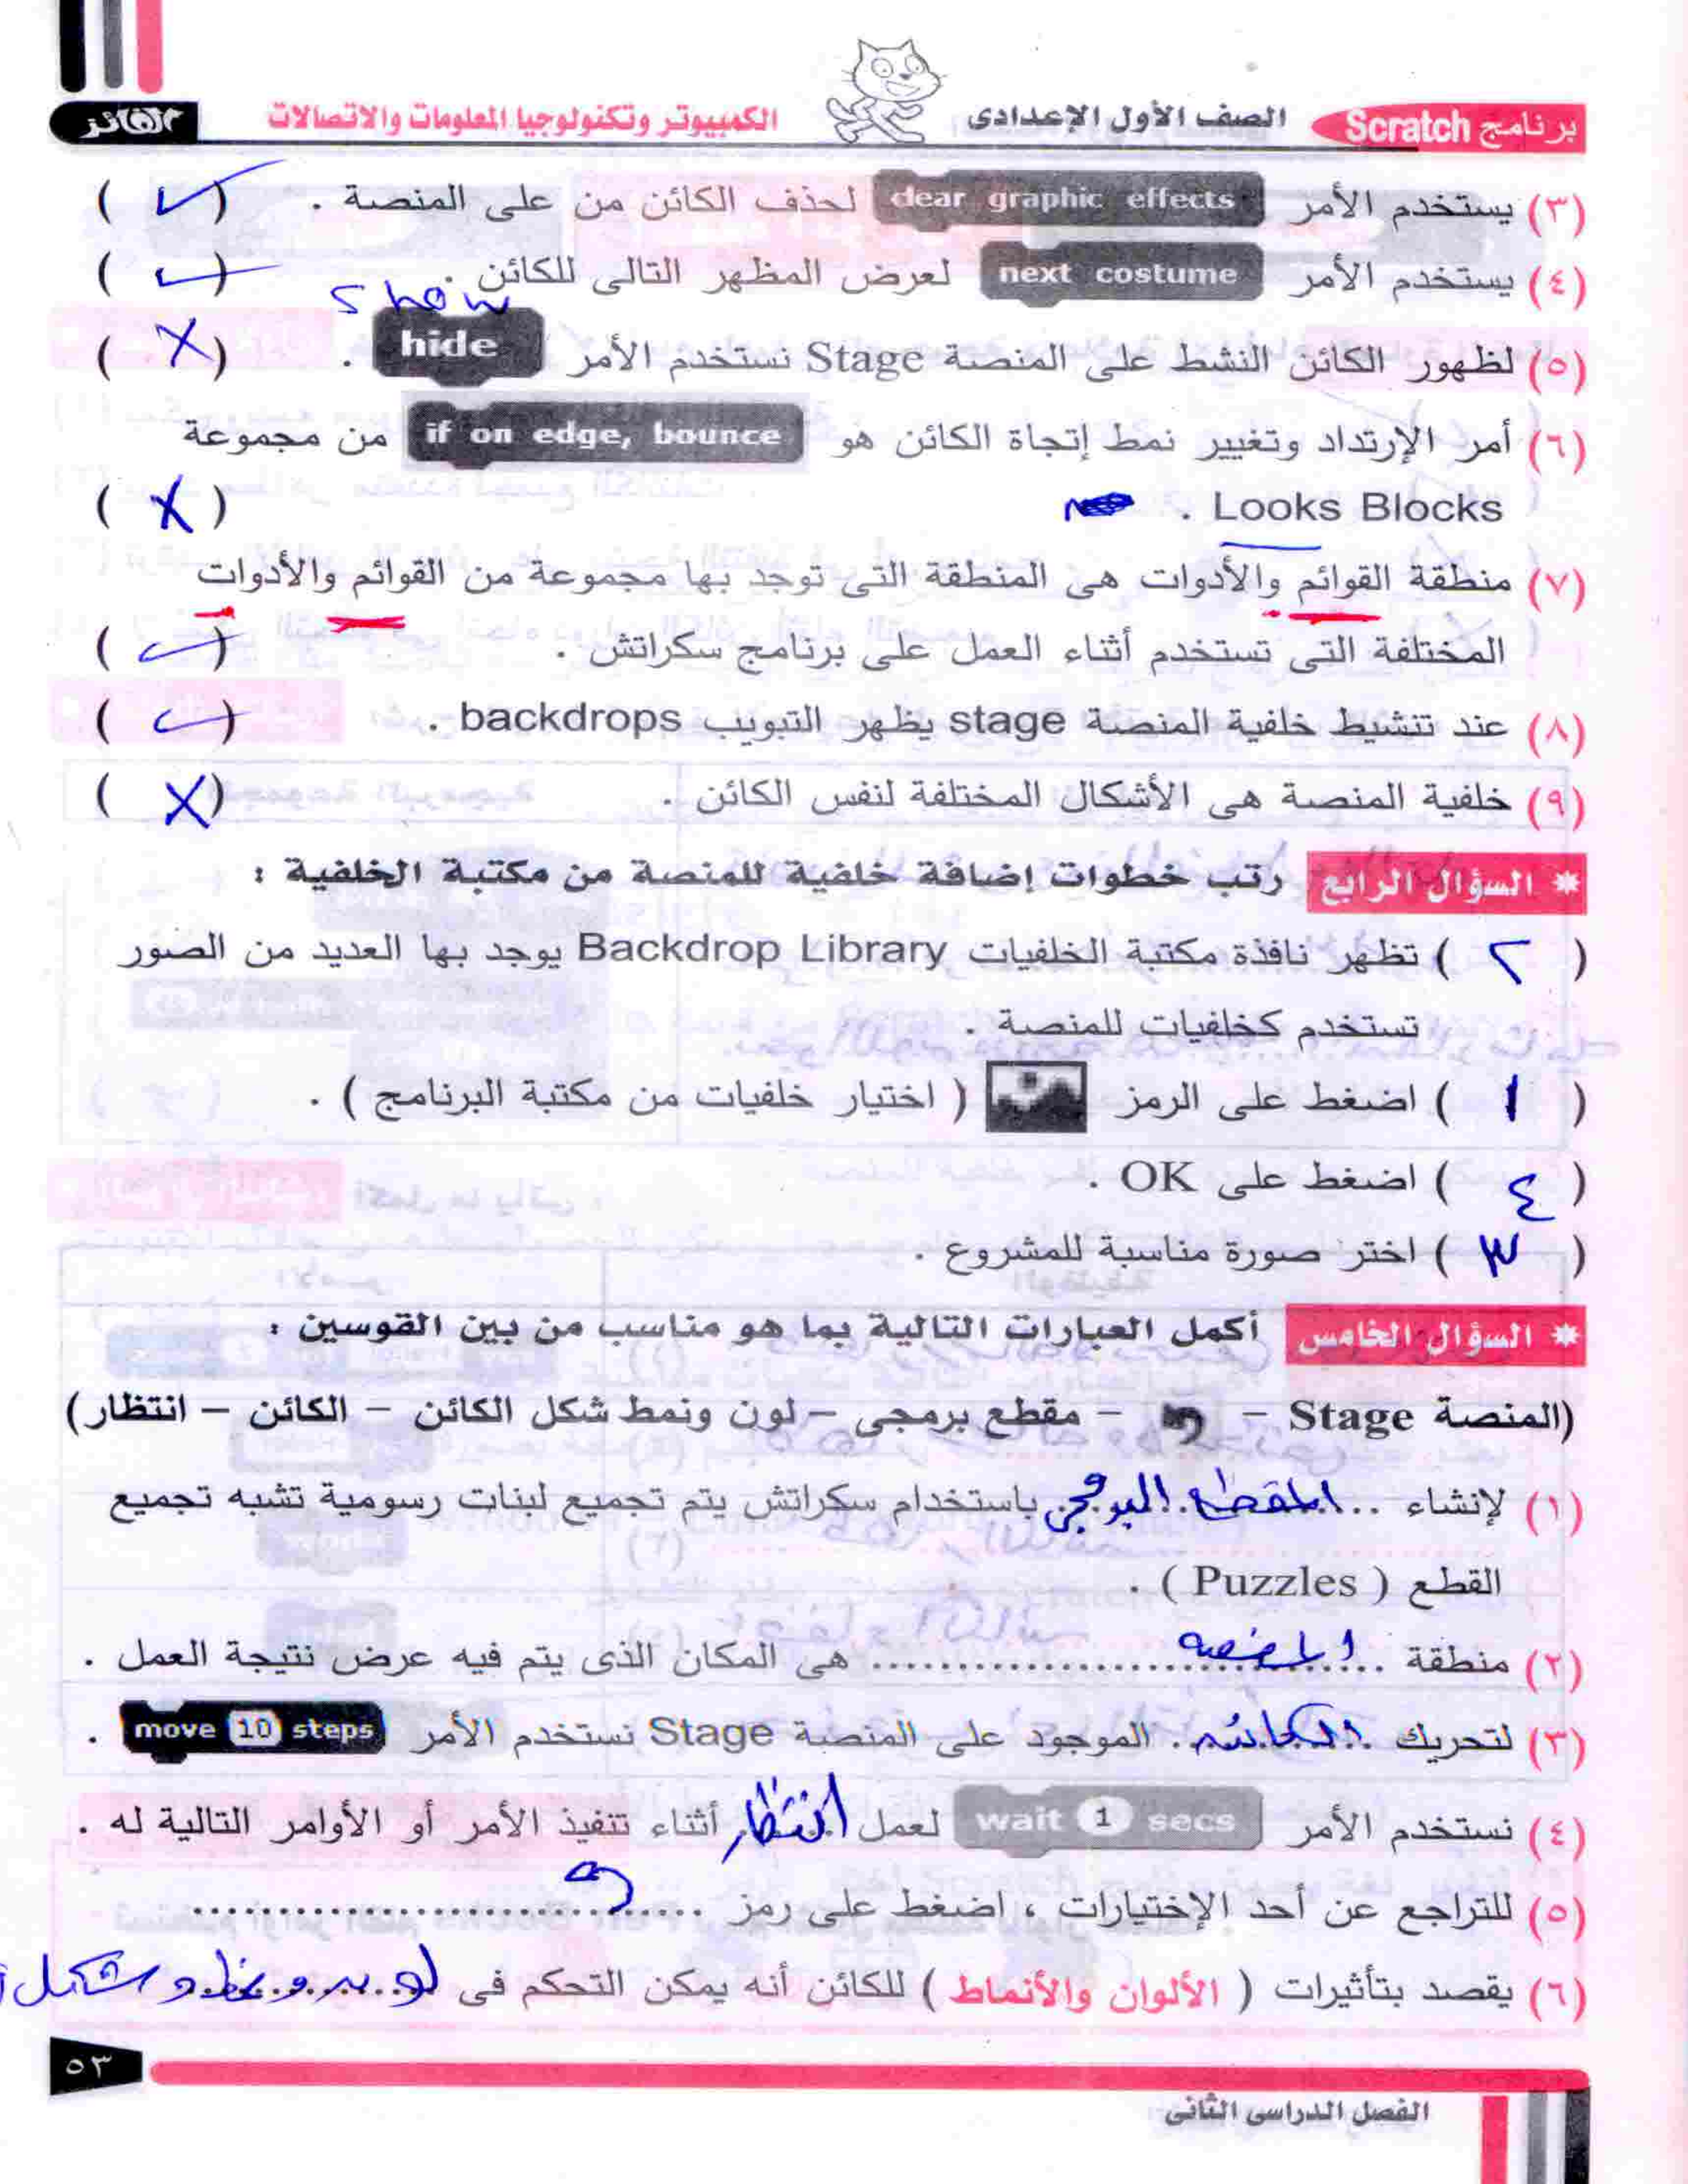 برنامج Scratch الصف الأول الإعدادى الكمبيوتر وتكنولوجيا المعلومات والاتصالات الفائز
(٣) يستخدم الأمر clear graphic effects لحذف الكائن من على المنصة . ( ✓ )
(٤) يستخدم الأمر next costume لعرض المظهر التالى للكائن . ( ✓ )
show
(٥) لظهور الكائن النشط على المنصة Stage نستخدم الأمر hide . ( X )
(٦) أمر الإرتداد وتغيير نمط إتجاة الكائن هو if on edge, bounce من مجموعة
Looks Blocks . ( X )
(٧) منطقة القوائم والأدوات هى المنطقة التى توجد بها مجموعة من القوائم والأدوات
المختلفة التى تستخدم أثناء العمل على برنامج سكراتش . ( ✓ )
(٨) عند تنشيط خلفية المنصة stage يظهر التبويب backdrops . ( ✓ )
(٩) خلفية المنصة هى الأشكال المختلفة لنفس الكائن . ( X )
* السؤال الرابع رتب خطوات إضافة خلفية للمنصة من مكتبة الخلفية :
( ٢ ) تظهر نافذة مكتبة الخلفيات Backdrop Library يوجد بها العديد من الصور
تستخدم كخلفيات للمنصة .
( ١ ) اضغط على الرمز ( اختيار خلفيات من مكتبة البرنامج ) .
( ٤ ) اضغط على OK .
( ٣ ) اختر صورة مناسبة للمشروع .
* السؤال الخامس أكمل العبارات التالية بما هو مناسب من بين القوسين :
(المنصة Stage – – مقطع برمجى – لون ونمط شكل الكائن – الكائن – انتظار)
(١) لإنشاء المقطع البرمجى باستخدام سكراتش يتم تجميع لبنات رسومية تشبه تجميع
القطع ( Puzzles ) .
(٢) منطقة ...المنصة........................ هى المكان الذى يتم فيه عرض نتيجة العمل .
(٣) لتحريك الكائن الموجود على المنصة Stage نستخدم الأمر move 10 steps .
(٤) نستخدم الأمر wait 1 secs لعمل انتظار أثناء تنفيذ الأمر أو الأوامر التالية له .
(٥) للتراجع عن أحد الإختيارات ، اضغط على رمز ..............................
(٦) يقصد بتأثيرات ( الألوان والأنماط ) للكائن أنه يمكن التحكم فى لون ونمط وشكل
٥٣
الفصل الدراسى الثانى